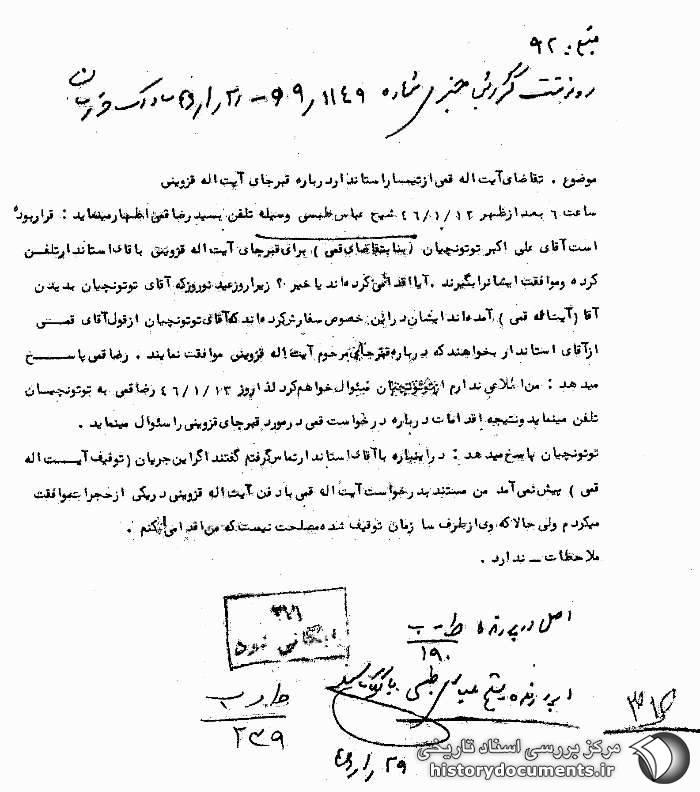 منبع: ۹۲
رونوشت گزارش خبری شماره ۱۱۴۹ر۹۹ – ۲۱ر۱ر۴۶ ساواک خراسان
موضوع . تقاضای آیت اله قمی از تیمسار استاندار درباره قبر جای آیت اله قزوینی
ساعت ٦ بعد از ظهر ٤٦/١/١٢ شیخ عباس طبسی وسیله تلفن بسید رضا قمی اظهار مینماید : قرار بوده
است آقای علی اکبر توتونچیان ( بنا بتقاضای قمی ) برای قبر جای آیت اله قزوینی با قای استاندار تلفن
کرده و موافقت ایشانرا بگیرند . آیا اقدامی کرده اند یا خیر ؟ زیرا روز عید نوروز که آقای توتونچیان بدیدن
آقا ( آیت اله قمی ) آمده اند ایشان در این خصوص سفارش کرده اند که آقای توتونچیان از قول آقای قمی
از آقای استاندار بخواهند که درباره قبر جای مرحوم آیت اله قزوینی موافقت نمایند . رضا قمی پاسخ
میدهد : من اطلاعی ندارم از توتونچیان سئوال خواهم کرد لذا روز ٤٦/١/١٣ رضا قمی به توتونچیان
تلفن مینماید و نتیجه اقدامات درباره درخواست قمی در مورد قبر جای قزوینی را سئوال مینماید .
توتونچیان پاسخ میدهد : در اینباره با آقای استاندار تماس گرفتم گفتند اگر این جریان ( توقیف آیت اله
قمی ) پیش نمی آمد من مستند بدرخواست آیت اله قمی با دفن آیت اله قزوینی در یکی از حجرات موافقت
میکردم ولی حالا که وی از طرف سا زمان توقیف شده مصلحت نیست که من اقدامی بکنم .
ملاحظات ــ ندارد .
اصل در پرونده ط - ب
۱۹۰
۳۶۶
بایگانی شود
در پرونده شیخ عباس طبسی بایگانی شود
ط و ب
۲۳۹
۲۹ ر ۱ر۴۶
مرکز بررسی اسناد تاریخی
historydocuments.ir